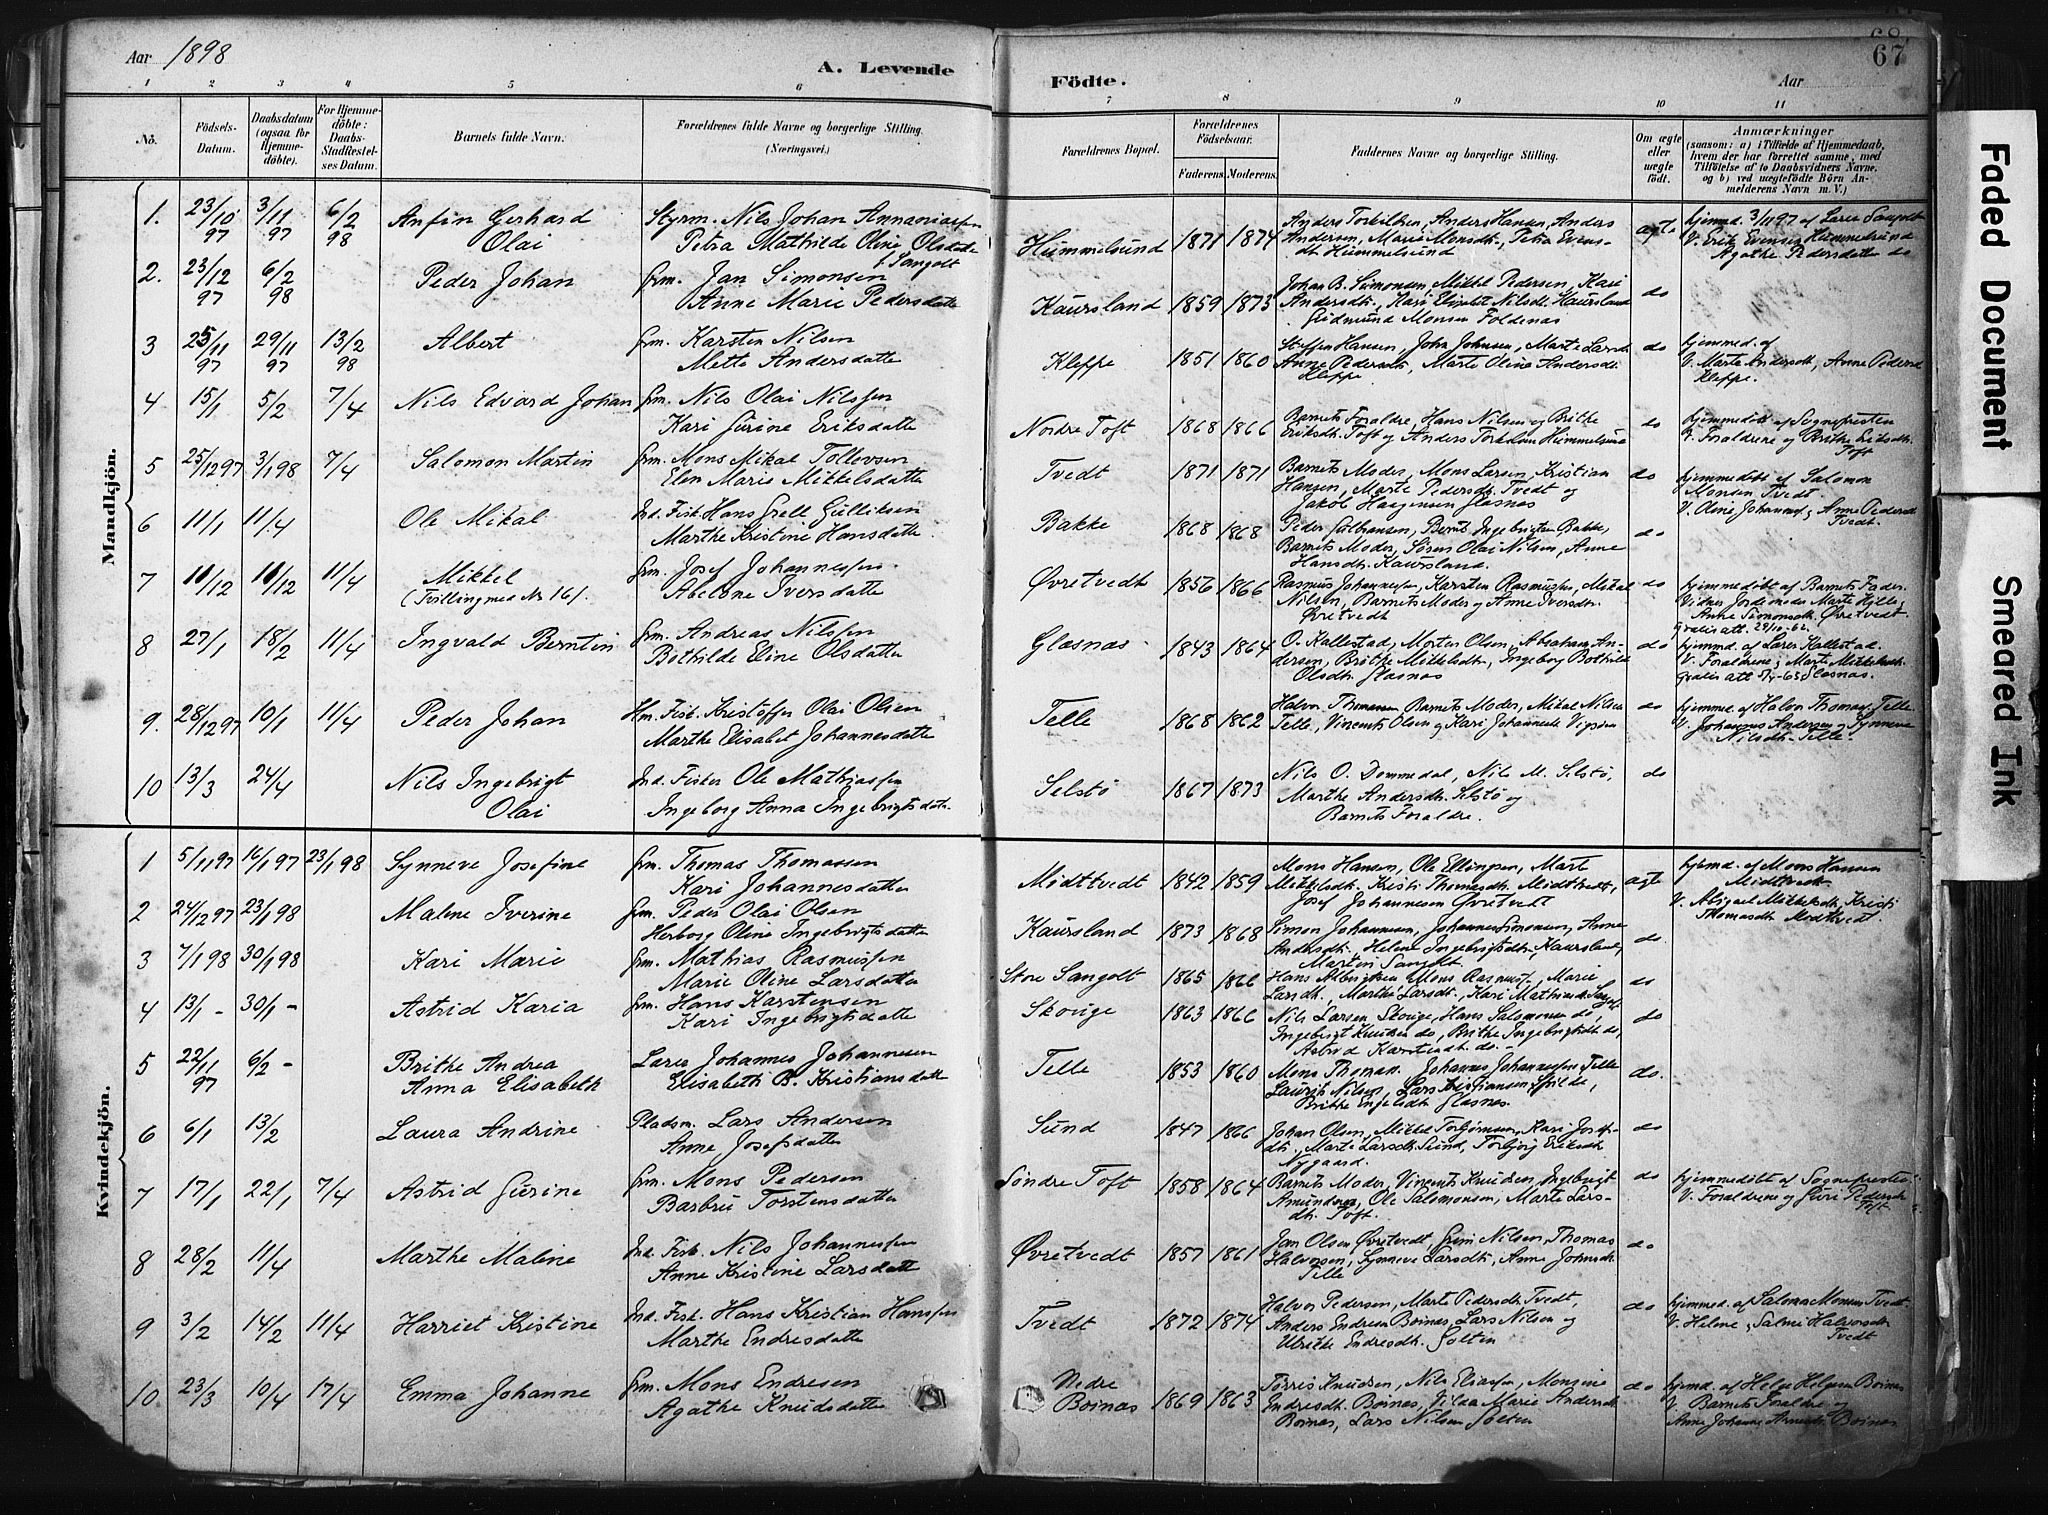 Aar 1898
A. Levende
Födte.
Aar
67
1 2 3 4 5 6 7 8 9 10 11
No.
Födsels-
Datum.
Daabsdatum
(ogsaa for
Hjemme-
döbte).
For Hjemme-
döbte:
Daabs-
Stadfæstel-
ses Datum.
Barnets fulde Navn.
Forældrenes fulde Navne og borgerlige Stilling.
(Næringsvei.)
Forældrenes Bopæl.
Forældrenes
Födselsaar.
Faderens. Moderens.
Faddernes Navne og borgerlige Stilling.
Om ægte
eller
uægte
födt.
Anmærkninger
(saasom: a) i Tilfælde af Hjemmedaab,
hvem der har forrettet samme, med
Tilföielse af to Daabsvidners Navne,
og b) ved uægtefödte Börn An-
melderens Navn m. V.)
Mandkjön.
1. 23/10 97 3/11 97 6/2 98 Anfin Gerhard
Olai
Styrm. Nils Johan Annaniassen
Petra Mathilde Oline Olsdatte
f. Sangolt
Hummelsund 1871 1874
Anders Torkilsen, Anders Hansen, Anders
Andersen, Marie Monsdt., Petra Evens-
dt Hummelsund
ægte
hjemmed. 3/11 97 af Lærer Sangolt
V. Erik Evensen Hummelsund
Agathe Pedersdatter do
2. 23/12 97 6/2 98 Peder Johan
Grm. Jan Simonsen
Anne Marie Pedersdatte
Kaursland 1859 1873
Johan B. Simonsen, Mikkel Pedersen, Kari
Andersdt., Kari Elisabet Nilsdt. Kaursland
Gudmund Monsen Foldenas
do
3 25/11 97 29/11 97 13/2 98 Albert
Grm. Karsten Nilsen
Mette Andersdatte
Kleppe 1851 1860
Steffen Hansen, John Johnsen, Marte Larsdt
Anne Pedersdt, Marte Oline Andersdt.
Kleppe
do
hjemmed. af
V. Marta Andersdt, Anne Pedersd
Kleppe.
4 15/1 5/2 7/4 Nils Edvard Johan
Grm. Nils Olai Nilssen
Kari Gurine Eriksdatte
Nordre Toft 1868 1866
Barnets Foraldre, Hans Nilsen og Brithe
Eriksdt. Toft og Anders Torkelsen Hummelsund
do
hjemmedöbt af Sognepresten
V. Foraldrene og Brithe Eriksdt.
Toft
5 25/12 97 3/1 98 7/4 Salomon Martin
Grm. Mons Mikal Tollevsen
Elen Marie Mikkelsdatte
Tvedt 1871 1871
Barnets Moder, Mons Larsen, Kristian
Hansen, Marte Pedersdt. Tvedt og
Jakob Haagensen Glasnes
do
hjemmedöbt af Salomon
Monsen Tvedt.
V. Oline Johannesd, Anne Pedersd
Tvedt.
6 11/1 11/4 Ole Mikal
Ind. Fisk. Hans Grell Gulliksen
Marthe Kristine Hansdatte
Bakke 1868 1868
Peder Gulbransen, Bernt Ingebrigtsen Bakke,
Barnets Moder, Sören Olai Nilsen, Anne
Hansdt. Kaursland.
do
7 10/12 10/12 11/4 Mikkel
(Tvilling med No 16).
Grm. Josef Johannessen
Abelone Iversdatte
Øvretvedt 1856 1866
Rasmus Johannessen, Karsten Rasmussen, Mikal
Nilsen, Barnets Moder og Anne Iversdtr.
Øvretvedt
do
hjemmedöbt af Barnets Fader.
Vidner Jordemoder Marte Hille,
Anne Simonsdt. Øvretvedt.
Gratis att. 29/10-62.
8 27/1 18/2 11/4 Ingvald Berntin
Grm. Andreas Nilssen
Bothilde Eline Olsdatte
Glasnas 1843 1864
O. Kallestad, Morten Olsen, Abraham An-
dersen, Brithe Mikkelsdt, Ingeborg Bothilde
Olsdt. Glasnas
do
hjemmed. af Lærer Kallestad.
V. Foraldrene, Marte Mikkelsdt.
Glasnas.
9. 28/12 97 10/1 11/4 Peder Johan
Hm. Fisk. Kristoffer Olai Olsen
Marthe Elisabet Johannesdatte
Telle 1868 1862
Halvor Thomassen Barnets Moder, Mikal Nilsen
Telle, Vincents Olsen og Kari Johannesdt.
do
hjemmed. af Halvor Thomas. Telle
V. Johannes Andersen og Synneve
Nilsdt. Telle.
10 13/3 24/4 Nils Ingebrigt
Olai
Ind. Fisker Ole Mathiassen
Ingeborg Anna Ingebrigtsdatte
Selstö 1867 1873
Nils O. Dommedal, Nils M. Selstö,
Marthe Andersdt. Selstö og
Barnets Foraldre.
do
Kvindekjön.
1 5/11 97 16/1 97 23/1 98 Synneve Josefine
Grm. Thomas Thomassen
Kari Johannesdatte
Midttvedt 1842 1859
Mons Hansen, Ole Ellingsen, Marte
Mikkelsdt. Kristi Thomasdt. Midttvedt,
Josef Johannesen Øvretvedt
ægte
hjemd. af Mons Hansen
Midttvedt
V. Abigael Mikkelsdt, Kristi
Thomasdt Midttvedt.
2 24/12 97 23/1 98 Malene Iverine
Grm. Peder Olai Olsen
Herborg Oline Ingebrigtsdatte
Kaursland 1873 1868
Simon Johannesen, Johannes Simonsen, Anne
Andersdt., Helene Ingebrigtsdt. Kaursland,
Martin Sangolt
do.
3 7/1 98 30/1 98 Kari Marie
Grm. Mathias Rasmussen
Marie Oline Larsdatte
Store Sangolt 1865 1866
Hans Albrigtsen, Mons Rasmuss., Marie
Larsdt., Marthe Larsdt., Kari Mathiasdt. Sangolt
do
4 13/1 - 30/1 - Astrid Karia
Grm. Hans Karstensen
Kari Ingebrigtsdatte
Skouge 1863 1866
Nils Larsen Skouge, Hans Salomonsen do,
Ingebrigt Knutsen do, Brithe Ingebrigtsdt do,
Astrid Karstensdt. do.
do
5 22/11 97 6/2 - Brithe Andrea
Anna Elisabeth
Lærer Johannes Johannesen
Elisabeth B. Kristiansdatte
Telle 1853 1860
Mons Thomas. Johannes Johannessen Telle
Laurits Nilsen, Lars Kristiansen Spilde,
Brithe Engelsdt Glasnes.
do.
6 6/1 13/2 Laura Andrine
Pladsm. Lars Andersen
Anne Josefsdatte
Sund 1847 1866
Johan Olsen, Mikkel Torbjörnsen, Kari Josef-
dt., Marte Larsdt. Sund, Torbjörg Eriksdt
Nygaard.
do
7 17/1 22/1 7/4 Astrid Gurine
Grm. Mons Pedersen
Barbru Torstensdatte
Söndre Toft 1858 1864
Barnets Moder, Vincents Knudsen, Ingebrigt
Amundsen, Ole Salomonsen, Marte Lars-
dt. Toft.
do
hjemmedöbt af Sognepresten
V. Foraldrene og Guri Pedersdt
Toft
8 28/2 11/4 Marthe Maline
Ind. Fisk. Nils Johannessen
Anne Kristine Larsdatte
Øvretvedt 1857 1861
Jan Olsen Øvretvedt, Nilsen, Thomas
Halvorsen, Synneve Larsdt., Anne Johnsdt.
Telle
do
9 3/2 14/2 11/4 Harriet Kristine
Ind. Fisk. Hans Kristian Hanssen
Marthe Endresdatte
Tvedt 1872 1874
Halvor Pedersen, Marte Pedersdt. Tvedt,
Anders Endresen Boinas, Lars Nilsen og
Ulrikke Endresdt. Golten
do
hjemmed. af Salomo Monsen Tvedt
V. Helene, Salmi Halvorsdt
Tvedt
10 23/3 10/4 17/4 Emma Johanne
Grm. Mons Endresen
Agathe Knudsdatte
Nedre
Boinas 1869 1863
Törris Knudsen, Nils Eliassen, Monsine
Endresdt. Boinas, Vilda Marie Andersdt.
Boinas, Lars Nilsen Golten
do
hjemd. af Helge Helgesen Boinas
V. Barnets Foraldre og
Anne Johanne Arnesdt. Boinas
Faded Document
Smeared Ink